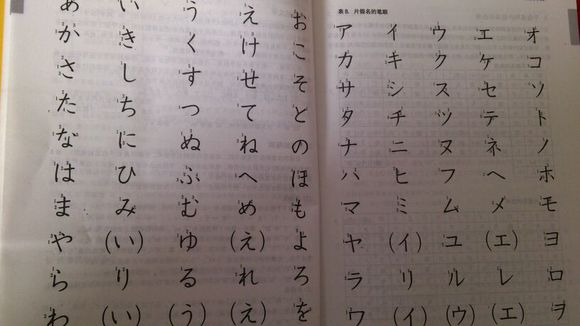 あ い う え お
か き く け こ
さ し す せ そ
た ち つ て と
な に ぬ ね の
は ひ ふ へ ほ
ま み む め も
や (い) ゆ (え) よ
ら り る れ ろ
わ (い) (う) (え) を
表8. 片假名的笔顺
ア イ ウ エ オ
カ キ ク ケ コ
サ シ ス セ ソ
タ チ ツ テ ト
ナ ニ ヌ ネ ノ
ハ ヒ フ ヘ ホ
マ ミ ム メ モ
ヤ (イ) ユ (エ) ヨ
ラ リ ル レ ロ
ワ (イ) (ウ) (エ) ヲ